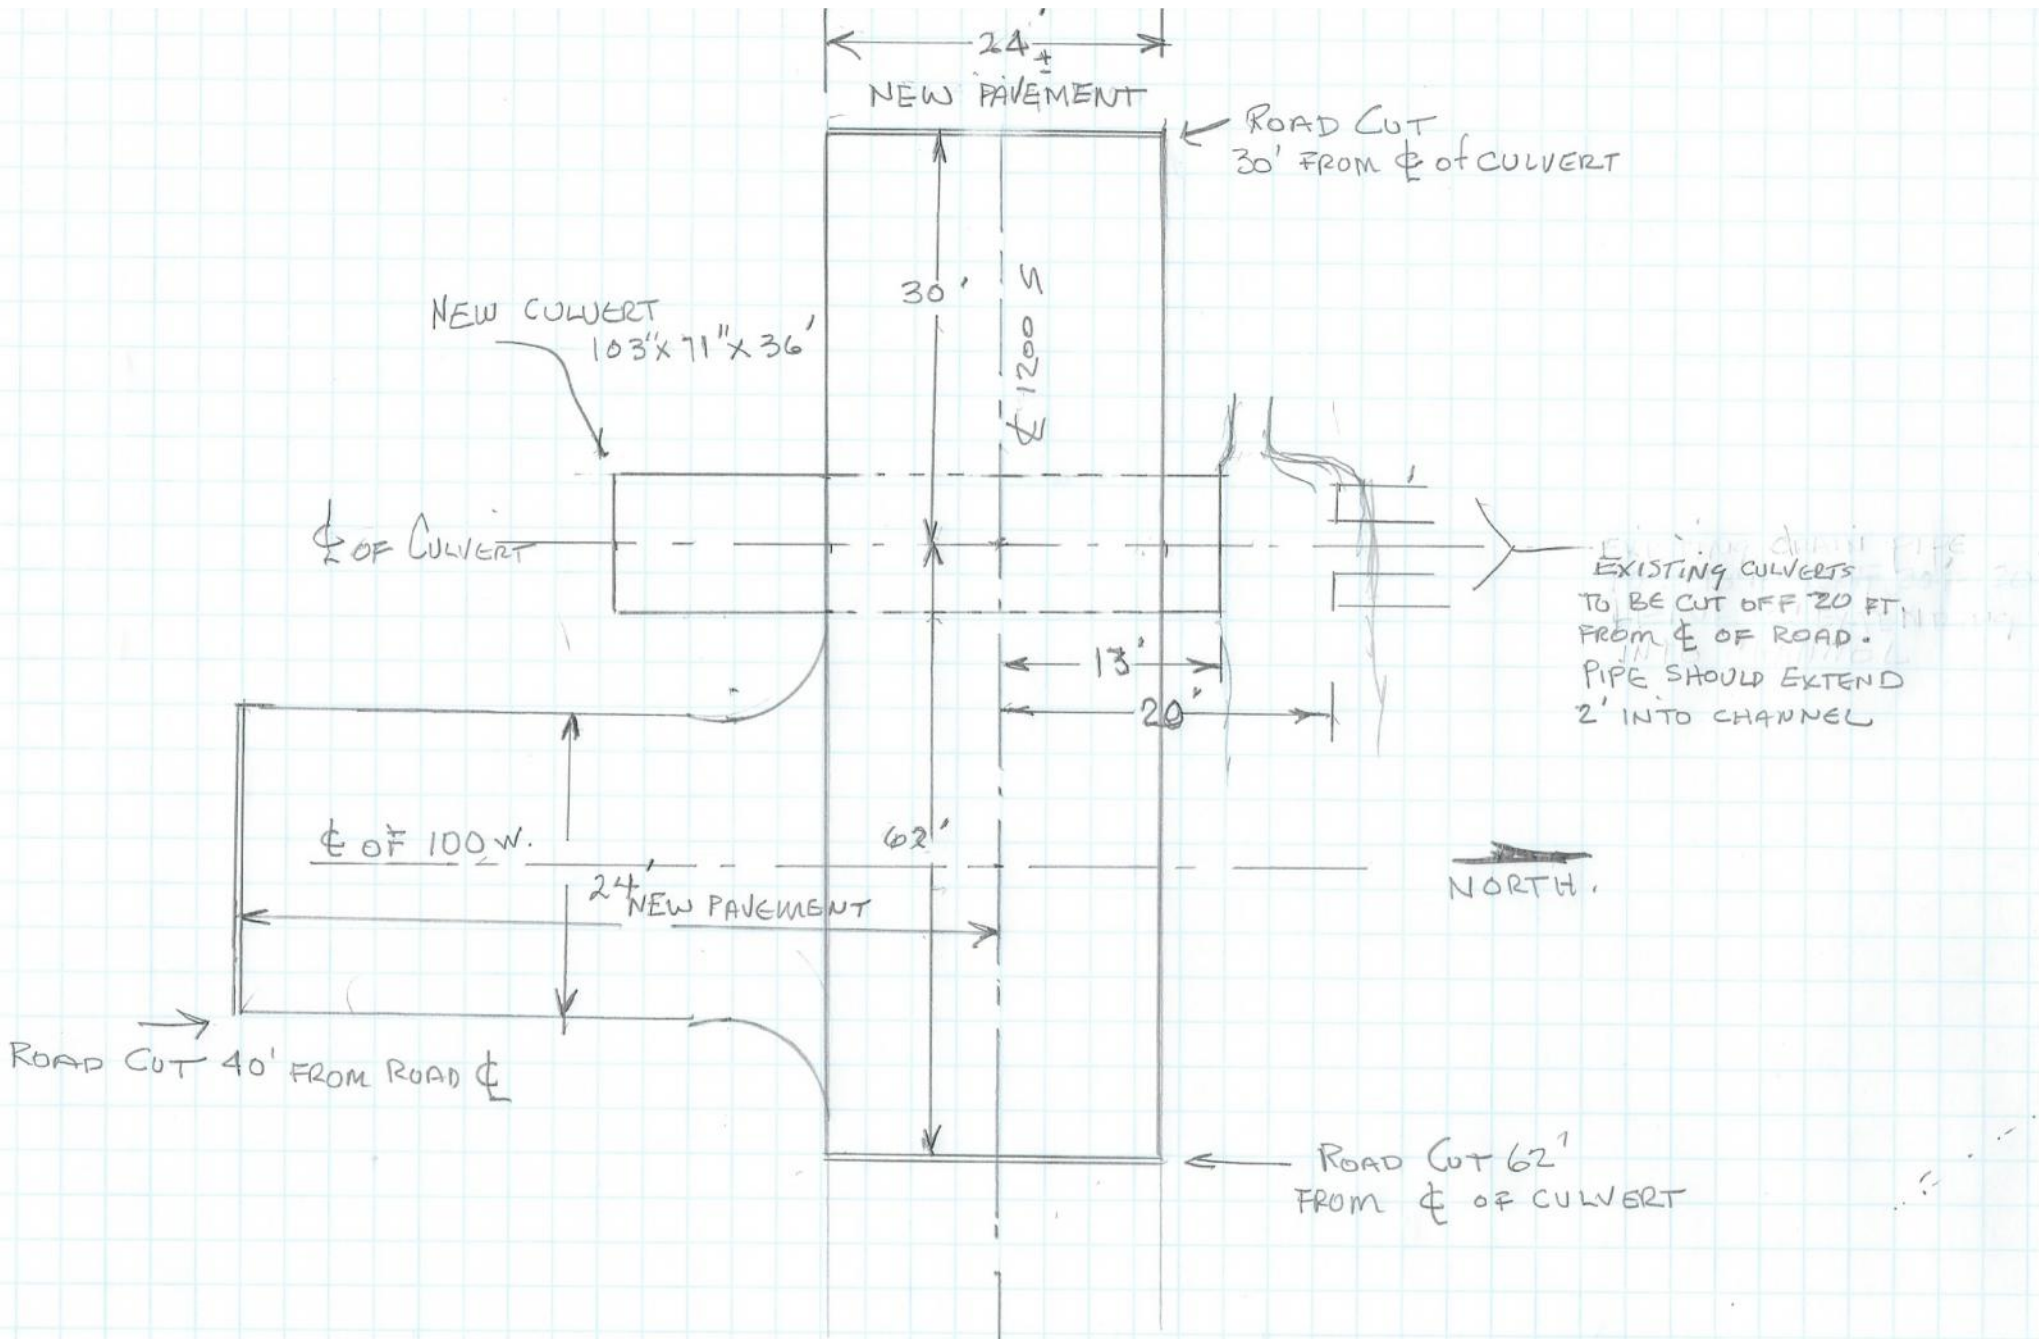 24' ±
NEW PAVEMENT
ROAD CUT
30' FROM ℄ of CULVERT
30'
℄ 1200 S
NEW CULVERT
103"x71"x36'
℄ OF CULVERT
EXISTING CULVERTS
TO BE CUT OFF 20 FT.
FROM ℄ OF ROAD.
PIPE SHOULD EXTEND
2' INTO CHANNEL
13'
20'
62'
℄ OF 100 W.
24'
NEW PAVEMENT
NORTH.
ROAD CUT 40' FROM ROAD ℄
ROAD CUT 62'
FROM ℄ OF CULVERT